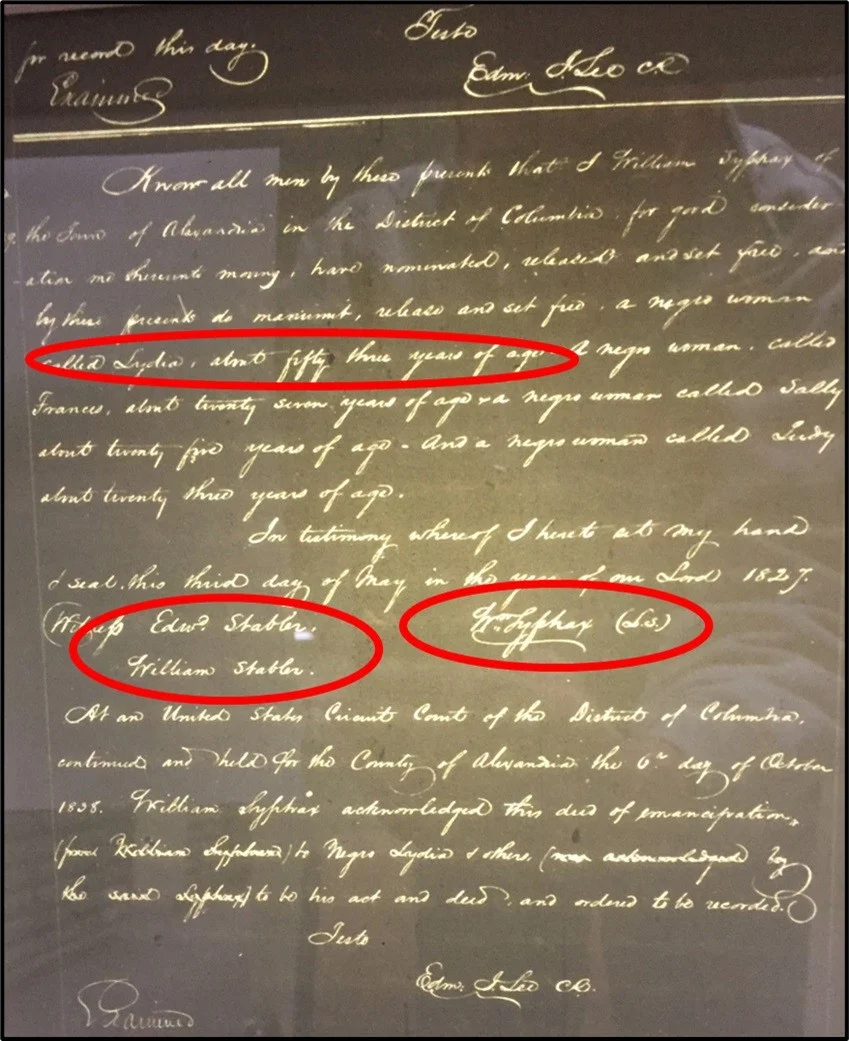 for record this day.
Teste
Edm. I. Lee CC
Examined
Know all men by these presents that I William Syphax of
the Town of Alexandria in the District of Columbia for good consider
-ation me thereunto moving, have nominated, released and set free, and
by these presents do manumit, release and set free, a negro woman
called Lydia, about fifty three years of age. A negro woman, called
Frances, about twenty seven years of age & a negro woman called Sally
about twenty five years of age - And a negro woman called Judy
about twenty three years of age.
In testimony whereof I hereto set my hand
& seal, this third day of May in the year of our Lord 1827.
Witness Edwd. Stabler. Wm Syphax (L.S.)
William Stabler.
At an United States Circuit Court of the District of Columbia,
continued and held for the County of Alexandria the 6th day of October
1828. William Syphax acknowledged this deed of emancipation,
(from William Syphax) to Negro Lydia & others, (was acknowledged by
the said Syphax) to be his act and deed, and ordered to be recorded.
Teste
Edm. I. Lee CC.
Examined